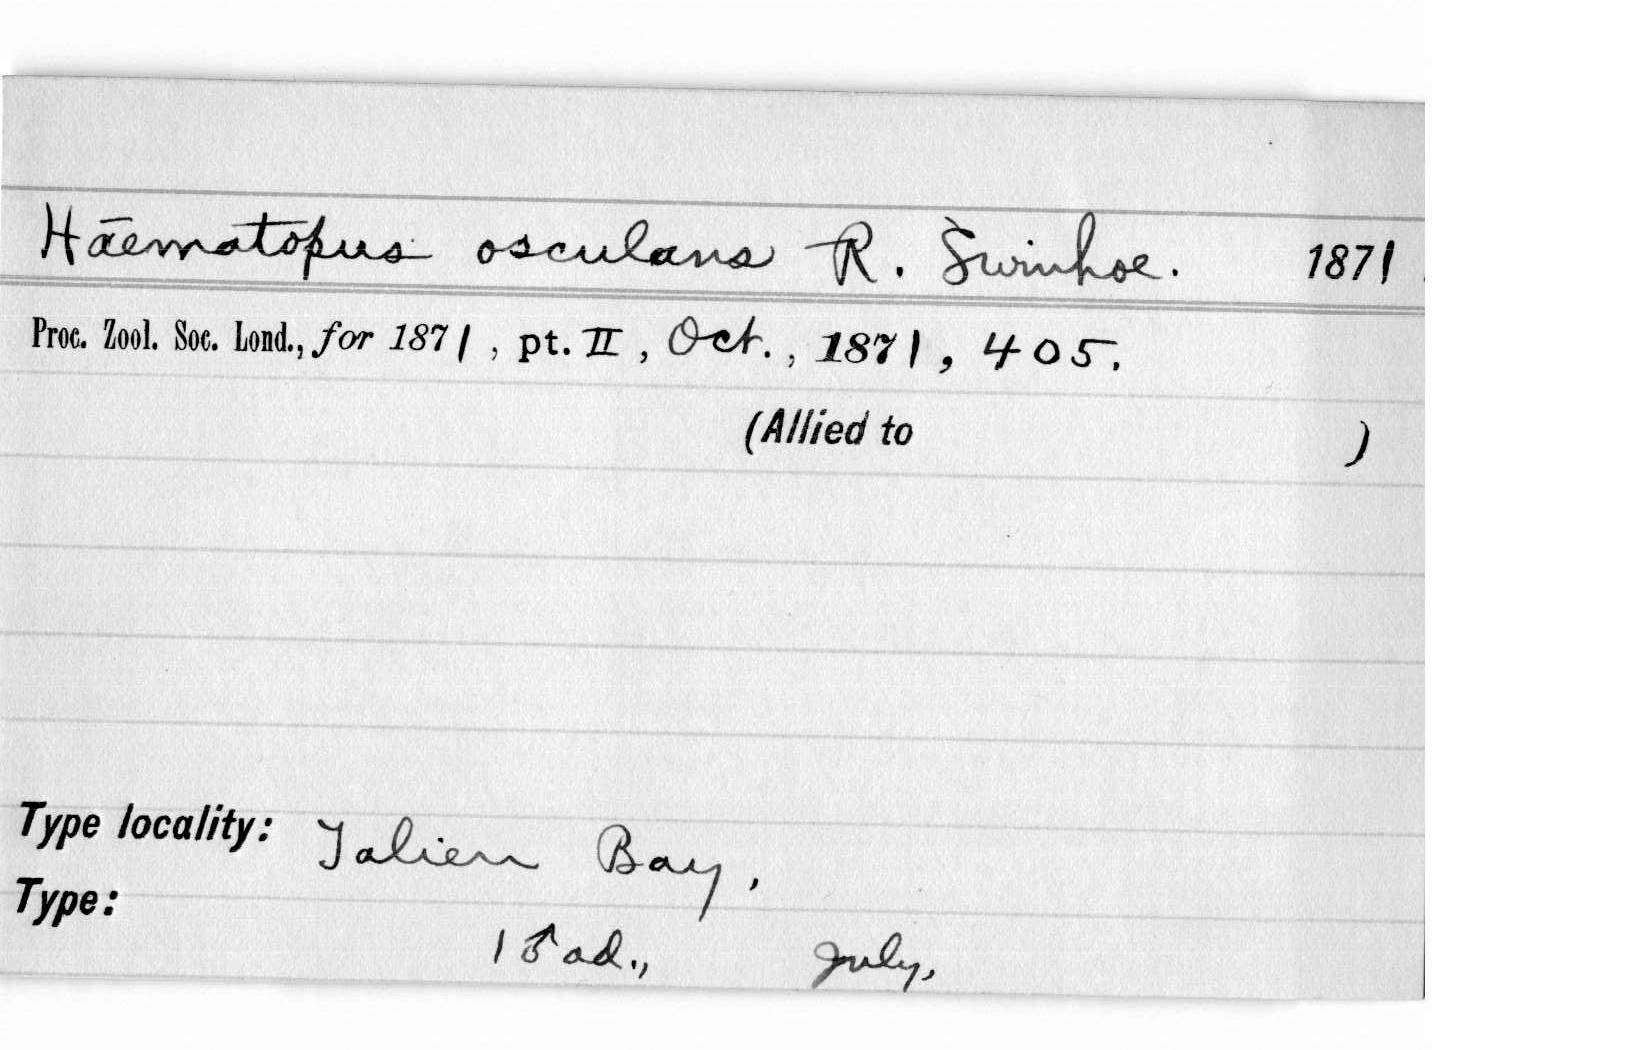 Haematopus osculans R. Swinhoe. 1871
Proc. Zool. Soc. Lond., for 1871, pt. II, Oct., 1871, 405.
(Allied to )
Type locality: Talien Bay,
Type:
1 ♂ ad., July,